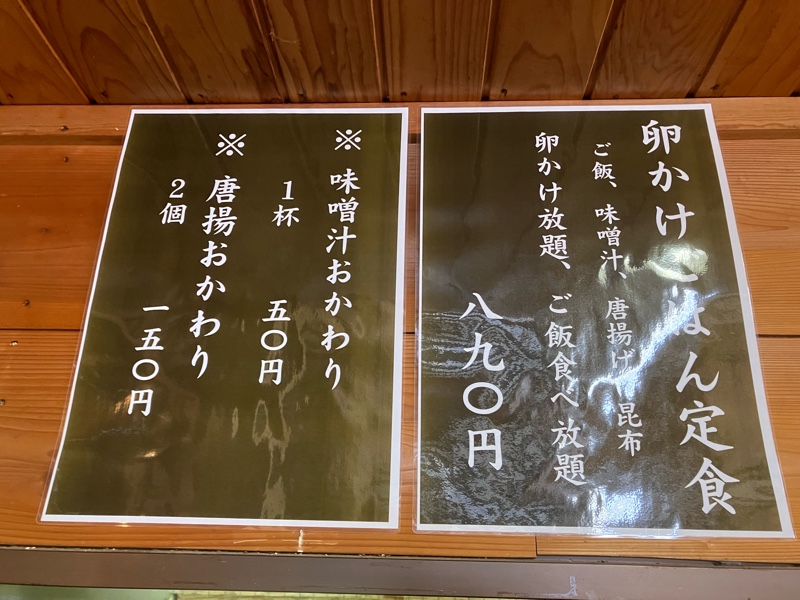 卵かけごはん定食
ご飯、味噌汁、唐揚げ、昆布
卵かけ放題、ご飯食べ放題
八九〇円
※味噌汁おかわり
1杯 五〇円
※唐揚おかわり
2個 一五〇円